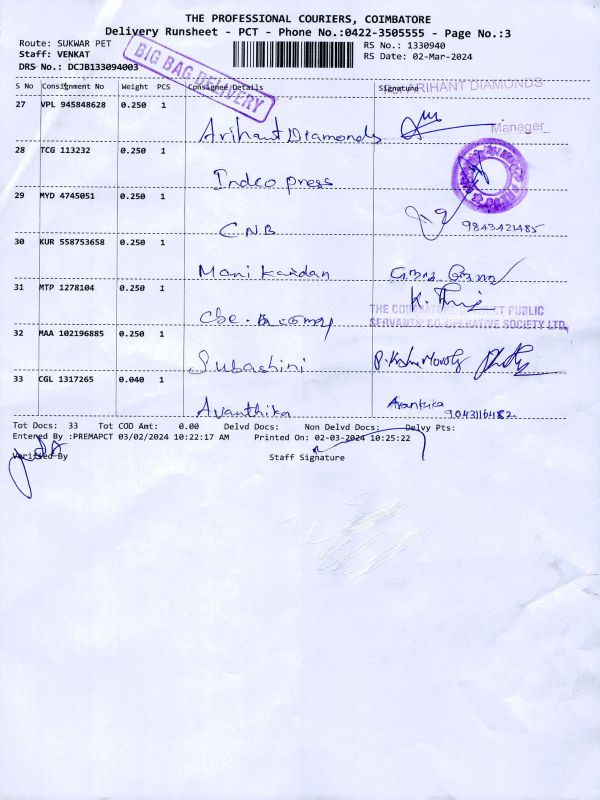 THE PROFESSIONAL COURIERS, COIMBATORE
Delivery Runsheet - PCT - Phone No.:0422-3505555 - Page No.:3
Route: SUKWAR PET
RS No.: 1330940
Staff: VENKAT
RS Date: 02-Mar-2024
DRS No.: DCJB133094003
BIG BAG DELIVERY
S No Consignment No Weight PCS Consignee Details Signature
ARIHANT DIAMONDS
27 VPL 945848628 0.250 1 Arihant Diamonds
Manager
28 TCG 113232 0.250 1 Indco press
29 MYD 4745051 0.250 1 CNB 9843421485
30 KUR 558753658 0.250 1 Manikandan
31 MTP 1278104 0.250 1 Cbe.
THE PUBLIC
SERVANTS CO-OPERATIVE SOCIETY LTD,
32 MAA 102196885 0.250 1 Subashini
33 CGL 1317265 0.040 1 Avanthika Avantika
Tot Docs: 33 Tot COD Amt: 0.00 Delvd Docs: Non Delvd Docs: Delvy Pts:
Entered By :PREMAPCT 03/02/2024 10:22:17 AM Printed On: 02-03-2024 10:25:22
Verified By Staff Signature